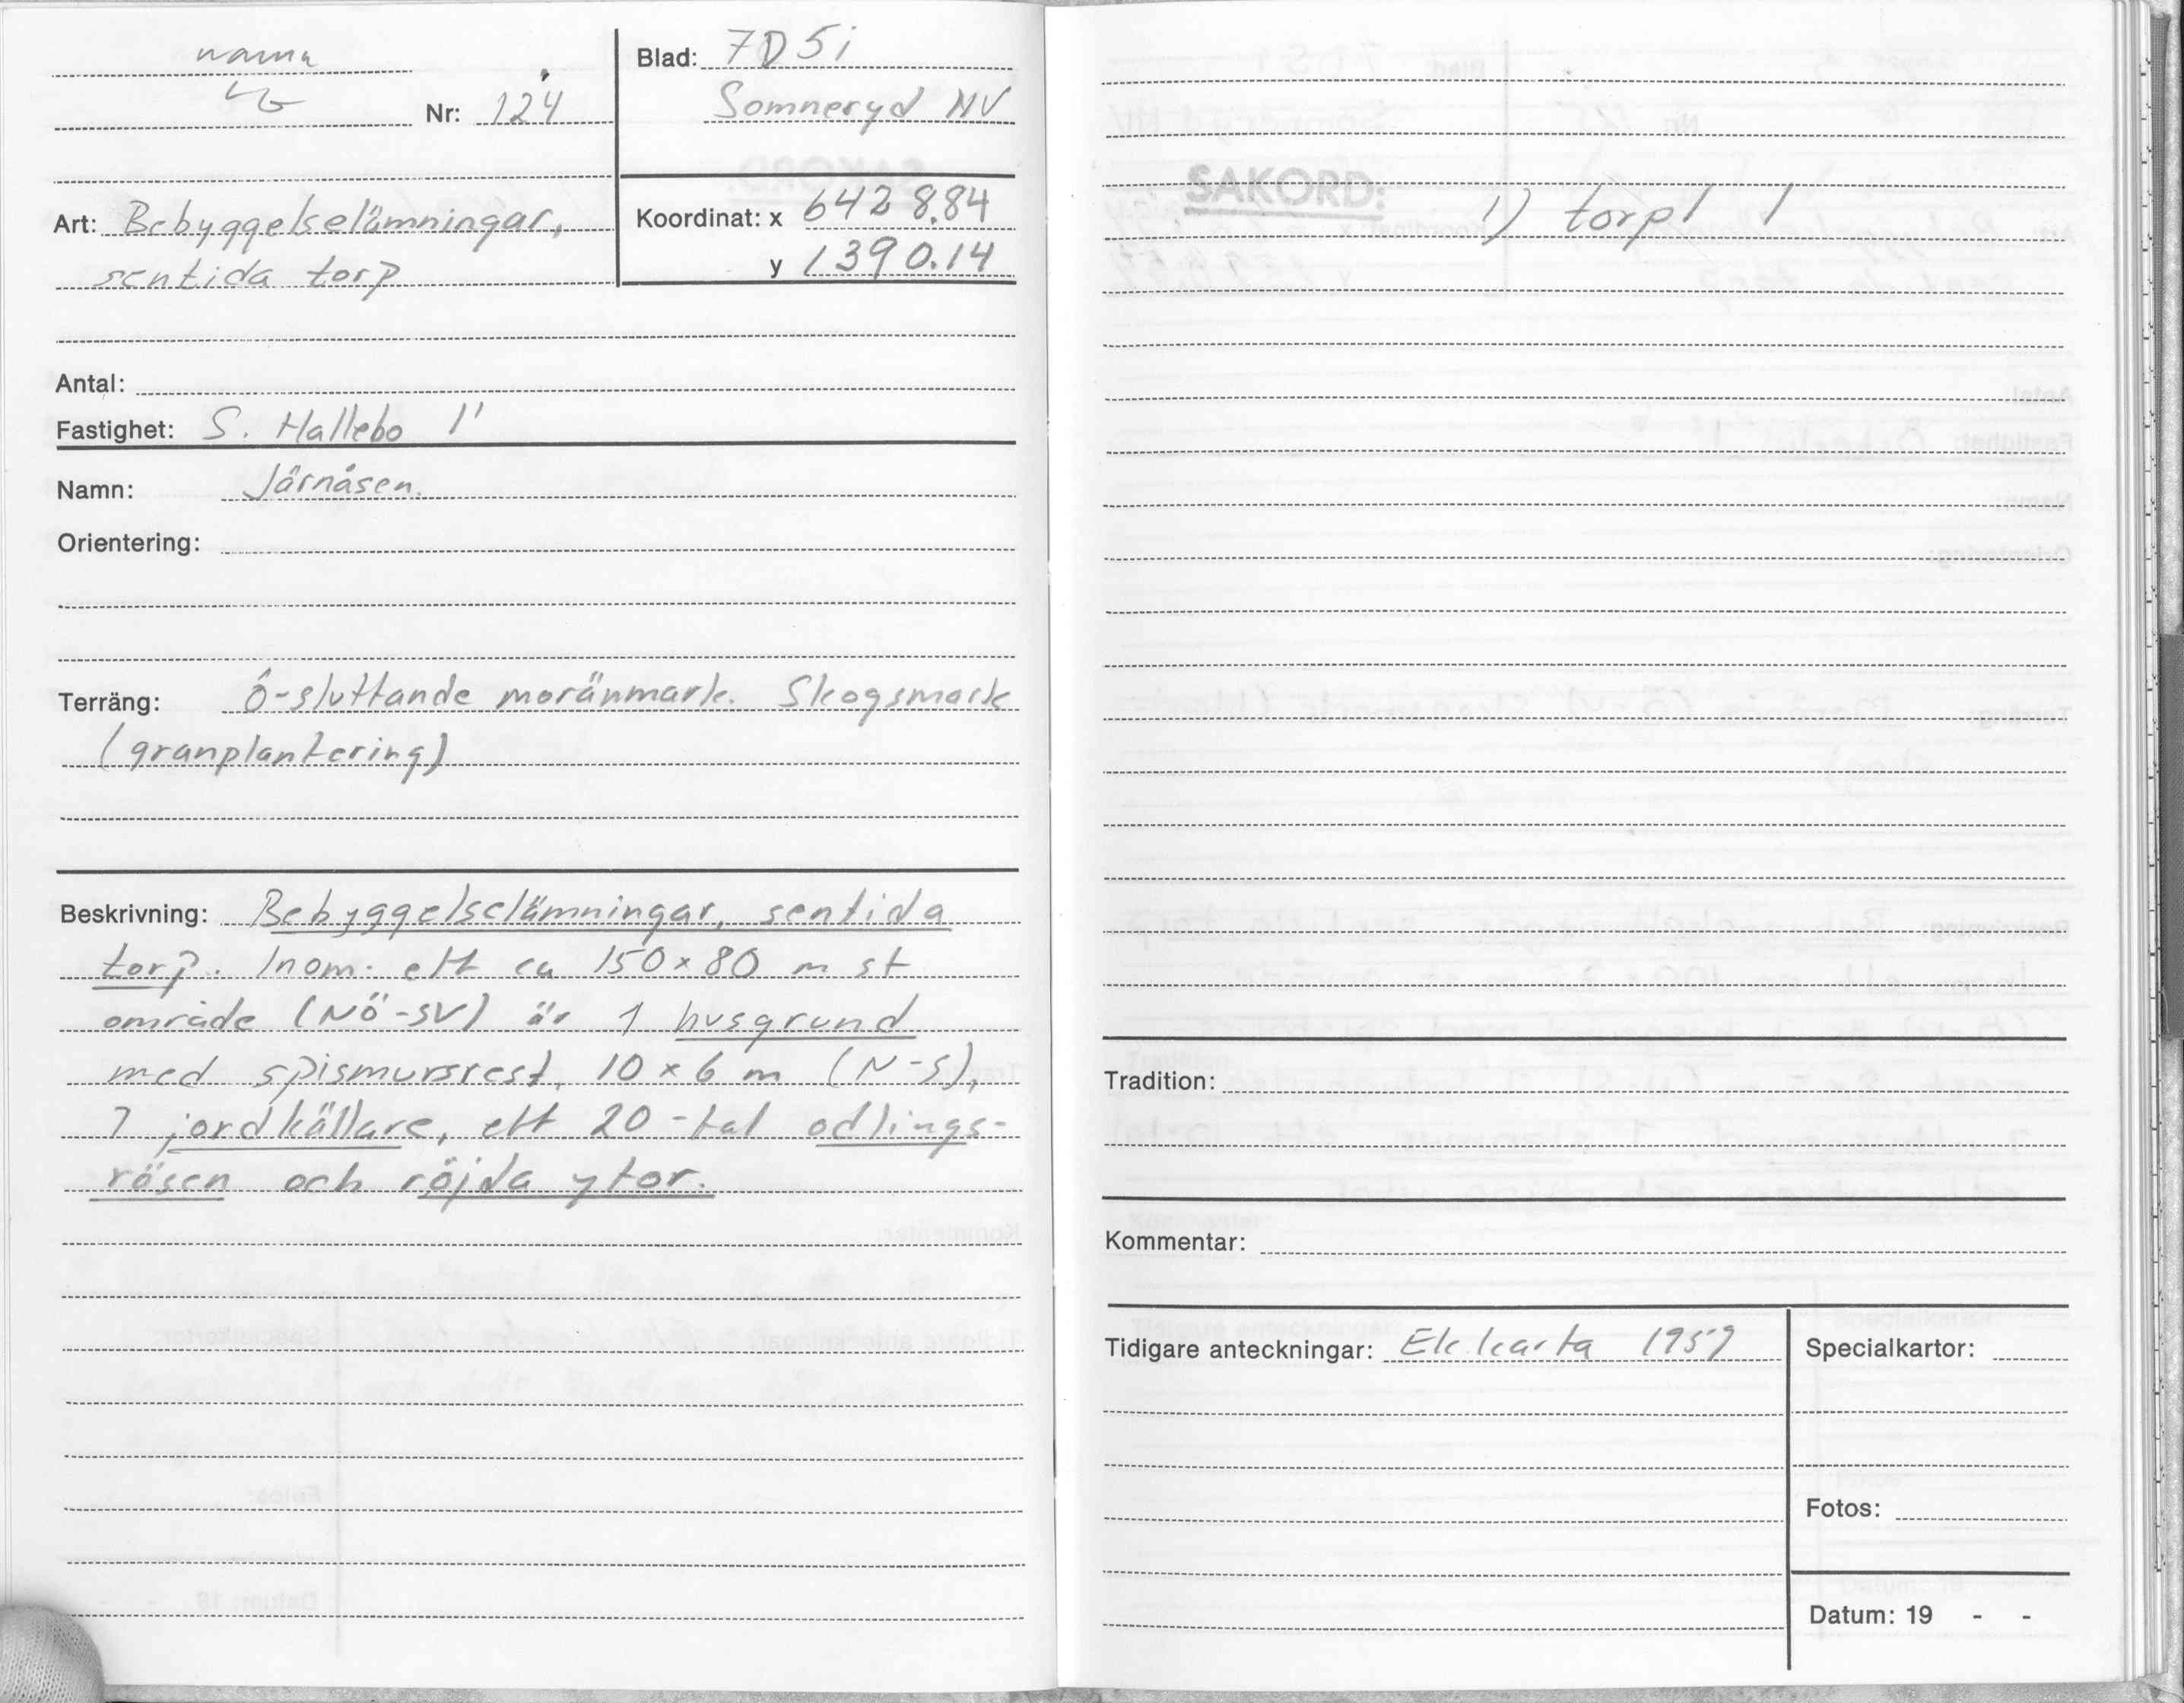 namn
Nr: 124
Art: Bebyggelselämningar,
sentida torp
Blad: 7D5i
Somneryd NV
Koordinat: x 6428.84
y 1390.14
Antal:
Fastighet: S. Hallebo 1'
Namn: Järnåsen.
Orientering:
Terräng: Ö-sluttande moränmark. Skogsmark
(granplantering)
Beskrivning: Bebyggelselämningar, sentida
torp. Inom ett ca 150x80 m st
område (NÖ-SV) är 1 husgrund
med spismursrest, 10x6 m (N-S),
1 jordkällare, ett 20-tal odlings-
rösen och röjda ytor.
SAKORD:
1) torpl 1
Tradition:
Kommentar:
Tidigare anteckningar: Ek. karta 1959
Specialkartor:
Fotos:
Datum: 19 - -